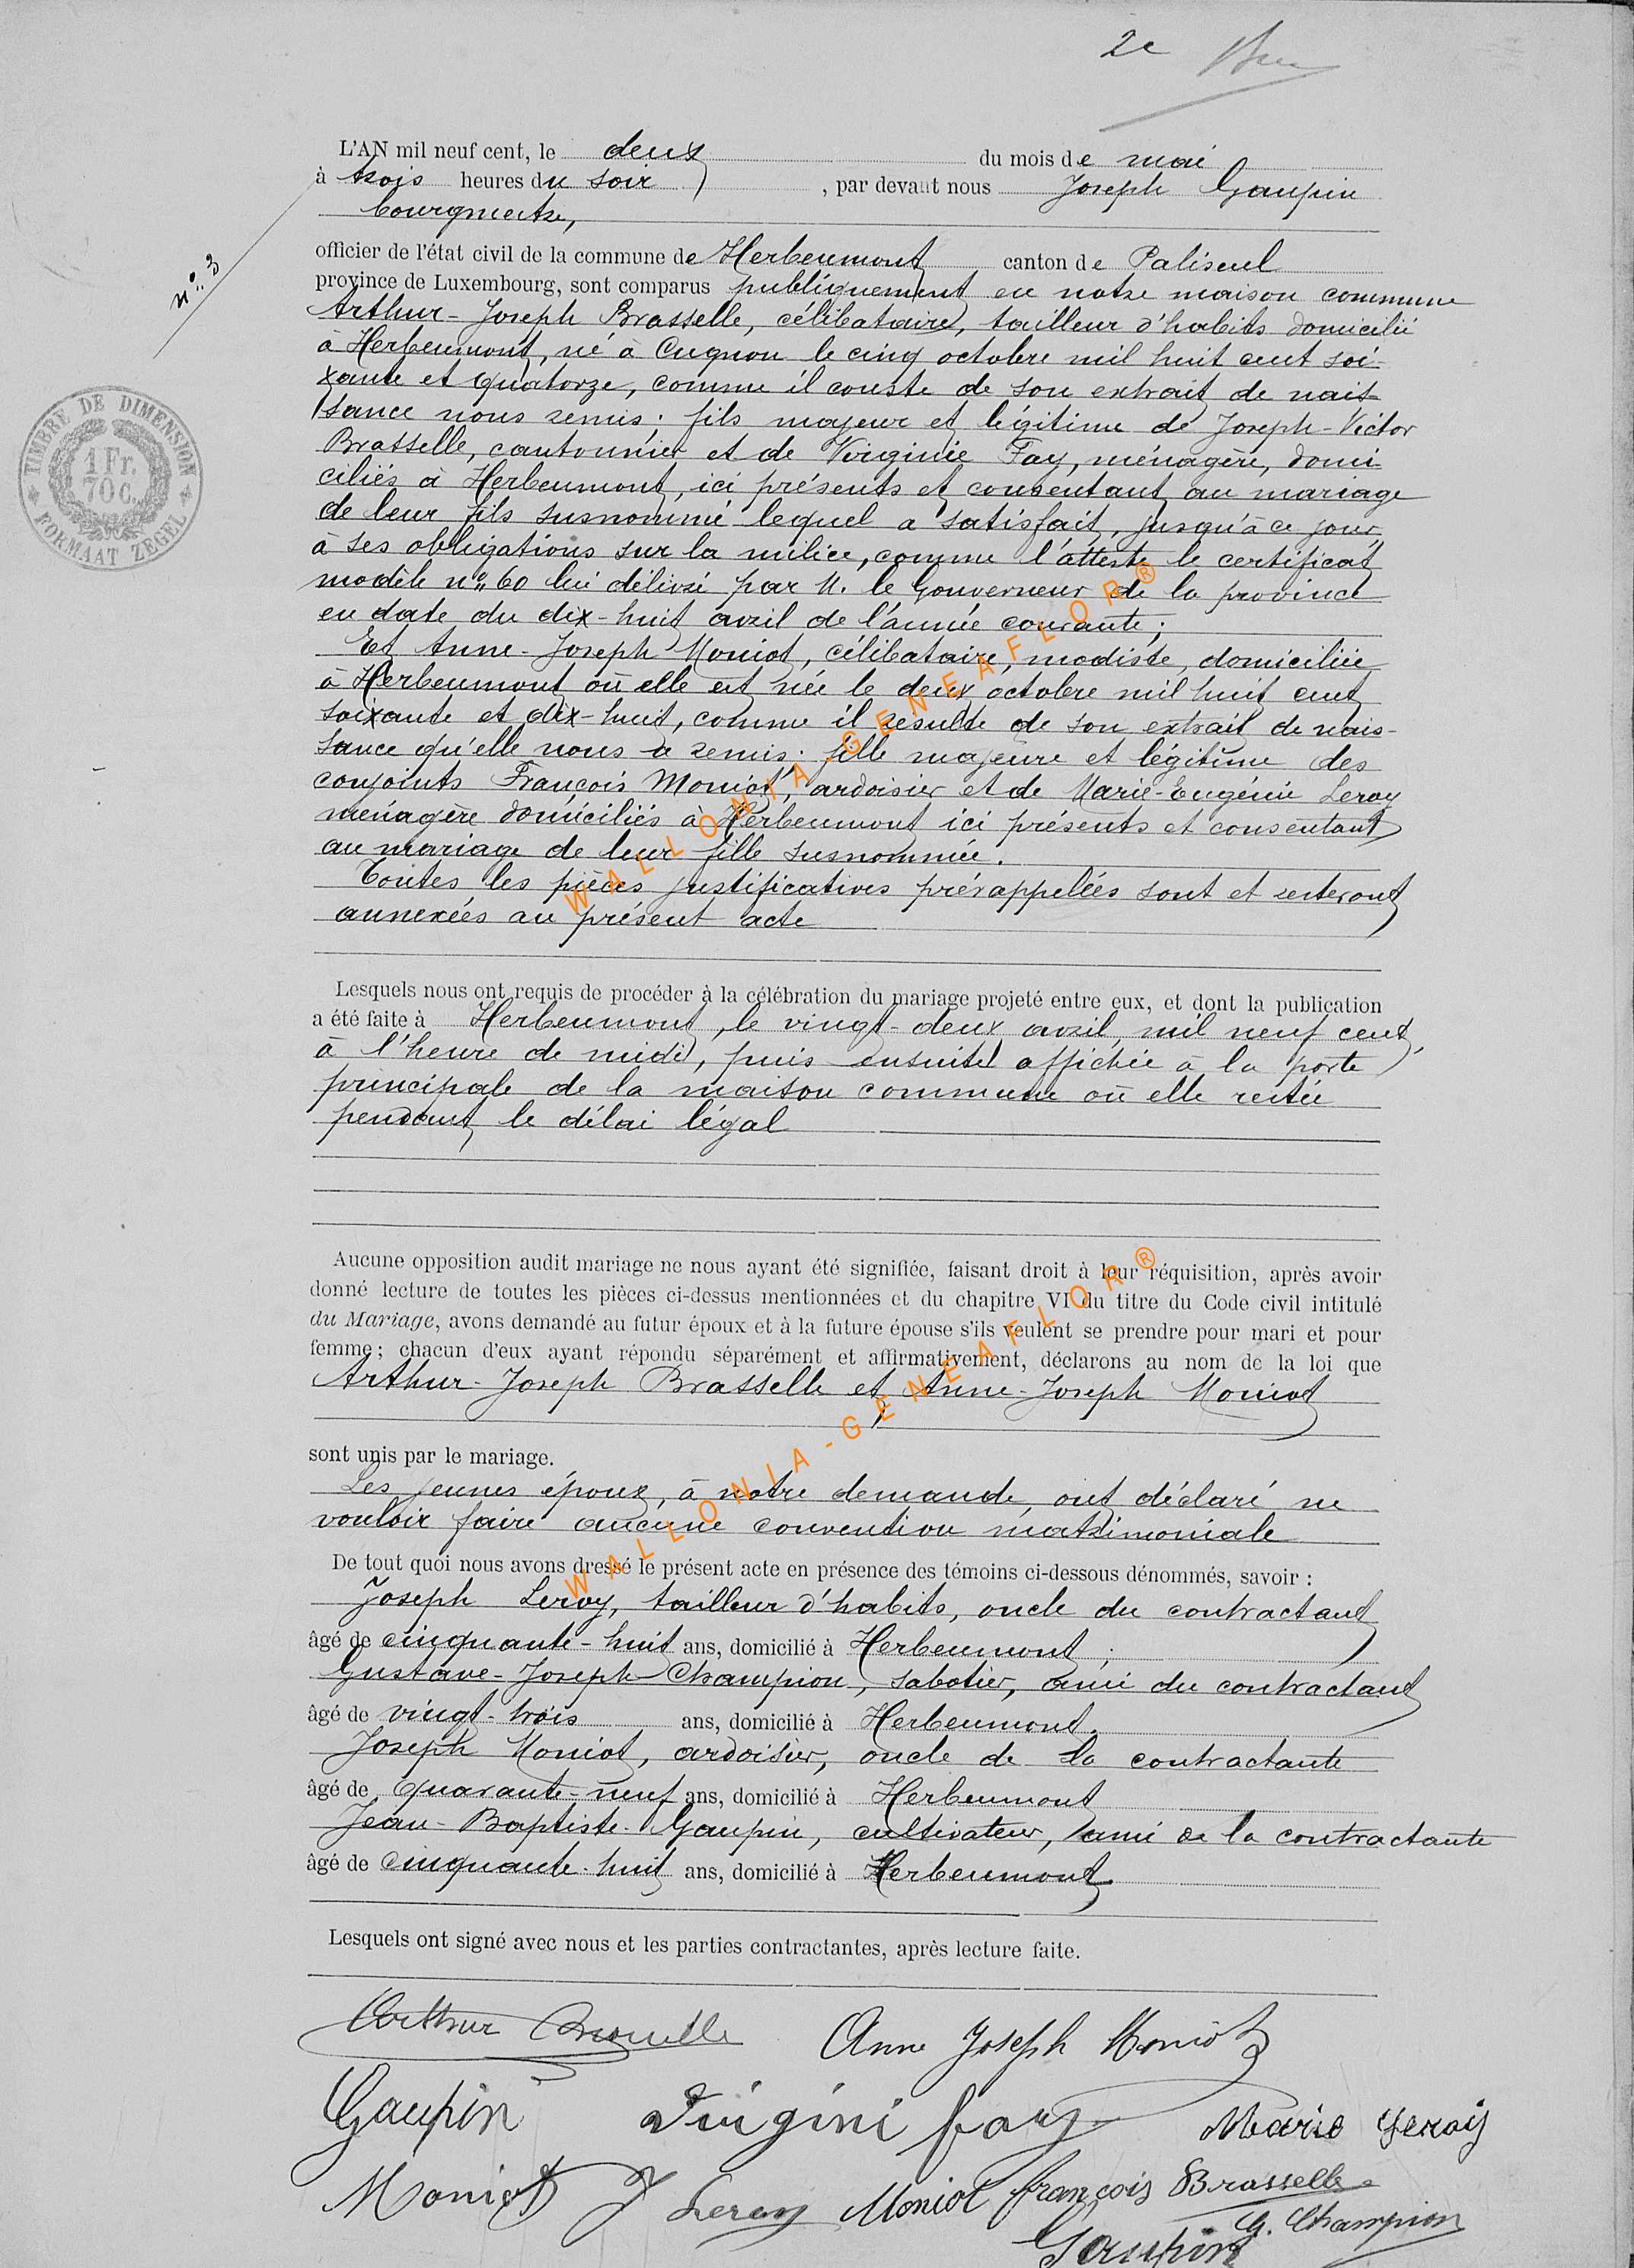 2e
L'AN mil neuf cent, le deux du mois de mai
à trois heures du soir, par devant nous Joseph Gaupin
bourgmestre,
n° 3
officier de l'état civil de la commune de Herbeumont canton de Paliseul
province de Luxembourg, sont comparus publiquement en notre maison commune
Arthur-Joseph Brasselle, célibataire, tailleur d'habits domicilié
à Herbeumont, né à Cugnon le cinq octobre mil huit cent soi-
xante et quatorze, comme il conste de son extrait de nais-
sance nous remis; fils majeur et légitime de Joseph-Victor
Brasselle, cantonnier et de Virginie Fay, ménagère, domi-
ciliés à Herbeumont, ici présents et consentant au mariage
de leur fils susnommé lequel a satisfait, jusqu'à ce jour,
à ses obligations sur la milice, comme l'atteste le certificat
modèle n° 60 lui délivré par M. le Gouverneur de la province
en date du dix-huit avril de l'année courante;
Et Anne-Joseph Moniot, célibataire, modiste, domiciliée
à Herbeumont où elle est née le deux octobre mil huit cent
soixante et dix-huit, comme il résulte de son extrait de nais-
sance qu'elle nous a remis; fille majeure et légitime des
conjoints François Moniot, ardoisier et de Marie-Eugénie Leroy
ménagère domiciliés à Herbeumont ici présents et consentant
au mariage de leur fille susnommée.
Toutes les pièces justificatives prérappelées sont et resteront
annexées au présent acte
WALLONIA-GENEAFLOR®
Lesquels nous ont requis de procéder à la célébration du mariage projeté entre eux, et dont la publication
a été faite à Herbeumont, le vingt-deux avril, mil neuf cent,
à l'heure de midi, puis ensuite affichée à la porte
principale de la maison commune où elle restée
pendant le délai légal
Aucune opposition audit mariage ne nous ayant été signifiée, faisant droit à leur réquisition, après avoir
donné lecture de toutes les pièces ci-dessus mentionnées et du chapitre VI du titre du Code civil intitulé
du Mariage, avons demandé au futur époux et à la future épouse s'ils veulent se prendre pour mari et pour
femme; chacun d'eux ayant répondu séparément et affirmativement, déclarons au nom de la loi que
Arthur-Joseph Brasselle et Anne-Joseph Moniot
sont unis par le mariage.
Les jeunes époux, à notre demande, ont déclaré ne
vouloir faire aucune convention matrimoniale
WALLONIA-GENEAFLOR®
De tout quoi nous avons dressé le présent acte en présence des témoins ci-dessous dénommés, savoir :
Joseph Leroy, tailleur d'habits, oncle du contractant
âgé de cinquante-huit ans, domicilié à Herbeumont;
Gustave-Joseph Champion, sabotier, ami du contractant
âgé de vingt-trois ans, domicilié à Herbeumont,
Joseph Moniot, ardoisier, oncle de la contractante
âgé de quarante-neuf ans, domicilié à Herbeumont
Jean-Baptiste Gaupin, cultivateur, ami de la contractante
âgé de cinquante-huit ans, domicilié à Herbeumont
Lesquels ont signé avec nous et les parties contractantes, après lecture faite.
TIMBRE DE DIMENSION
1 Fr.
70 C.
FORMAAT ZEGEL
Arthur Brasselle Anne Joseph Moniot
Gaupin Virgini fay Marie Leroy
Moniot J Leroy Moniot françois Brasselle
G. Champion
Gaupin